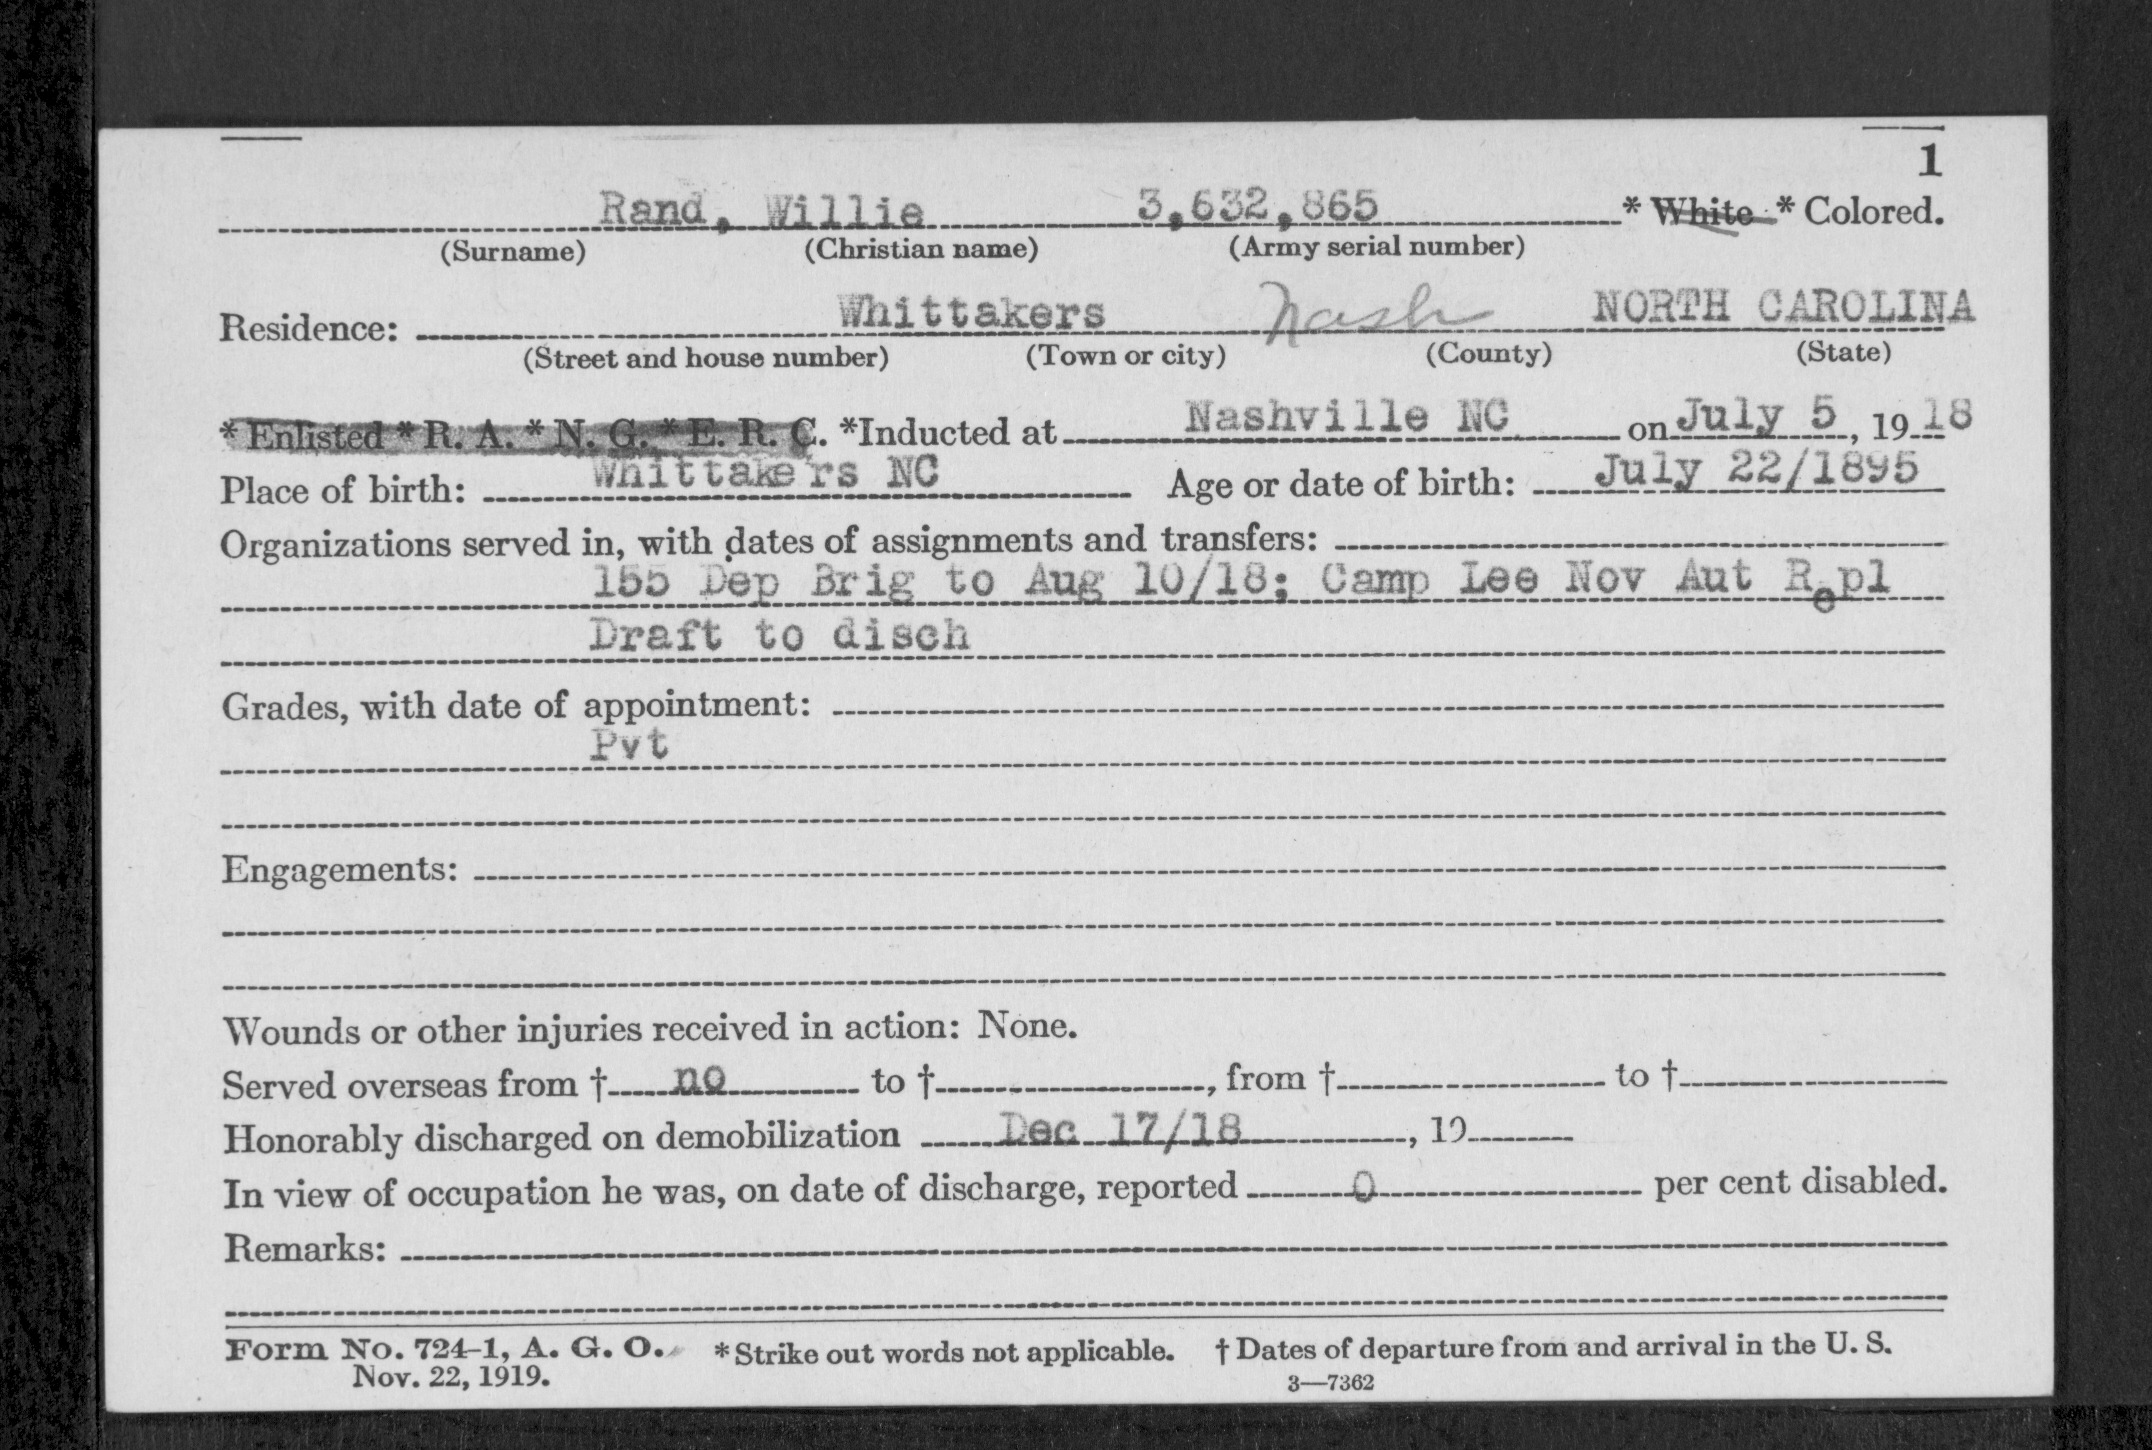 1
Rand, Willie 3,632,865 * White * Colored.
(Surname) (Christian name) (Army serial number)
Residence: Whittakers Nash NORTH CAROLINA
(Street and house number) (Town or city) (County) (State)
* Enlisted * R. A. * N. G. * E. R. C. *Inducted at Nashville NC on July 5, 1918
Place of birth: Whittakers NC Age or date of birth: July 22/1895
Organizations served in, with dates of assignments and transfers:
155 Dep Brig to Aug 10/18; Camp Lee Nov Aut Repl
Draft to disch
Grades, with date of appointment:
Pvt
Engagements:
Wounds or other injuries received in action: None.
Served overseas from † no to †, from † to †
Honorably discharged on demobilization Dec 17/18, 19
In view of occupation he was, on date of discharge, reported 0 per cent disabled.
Remarks:
Form No. 724-1, A. G. O. * Strike out words not applicable. † Dates of departure from and arrival in the U. S.
Nov. 22, 1919. 3—7362